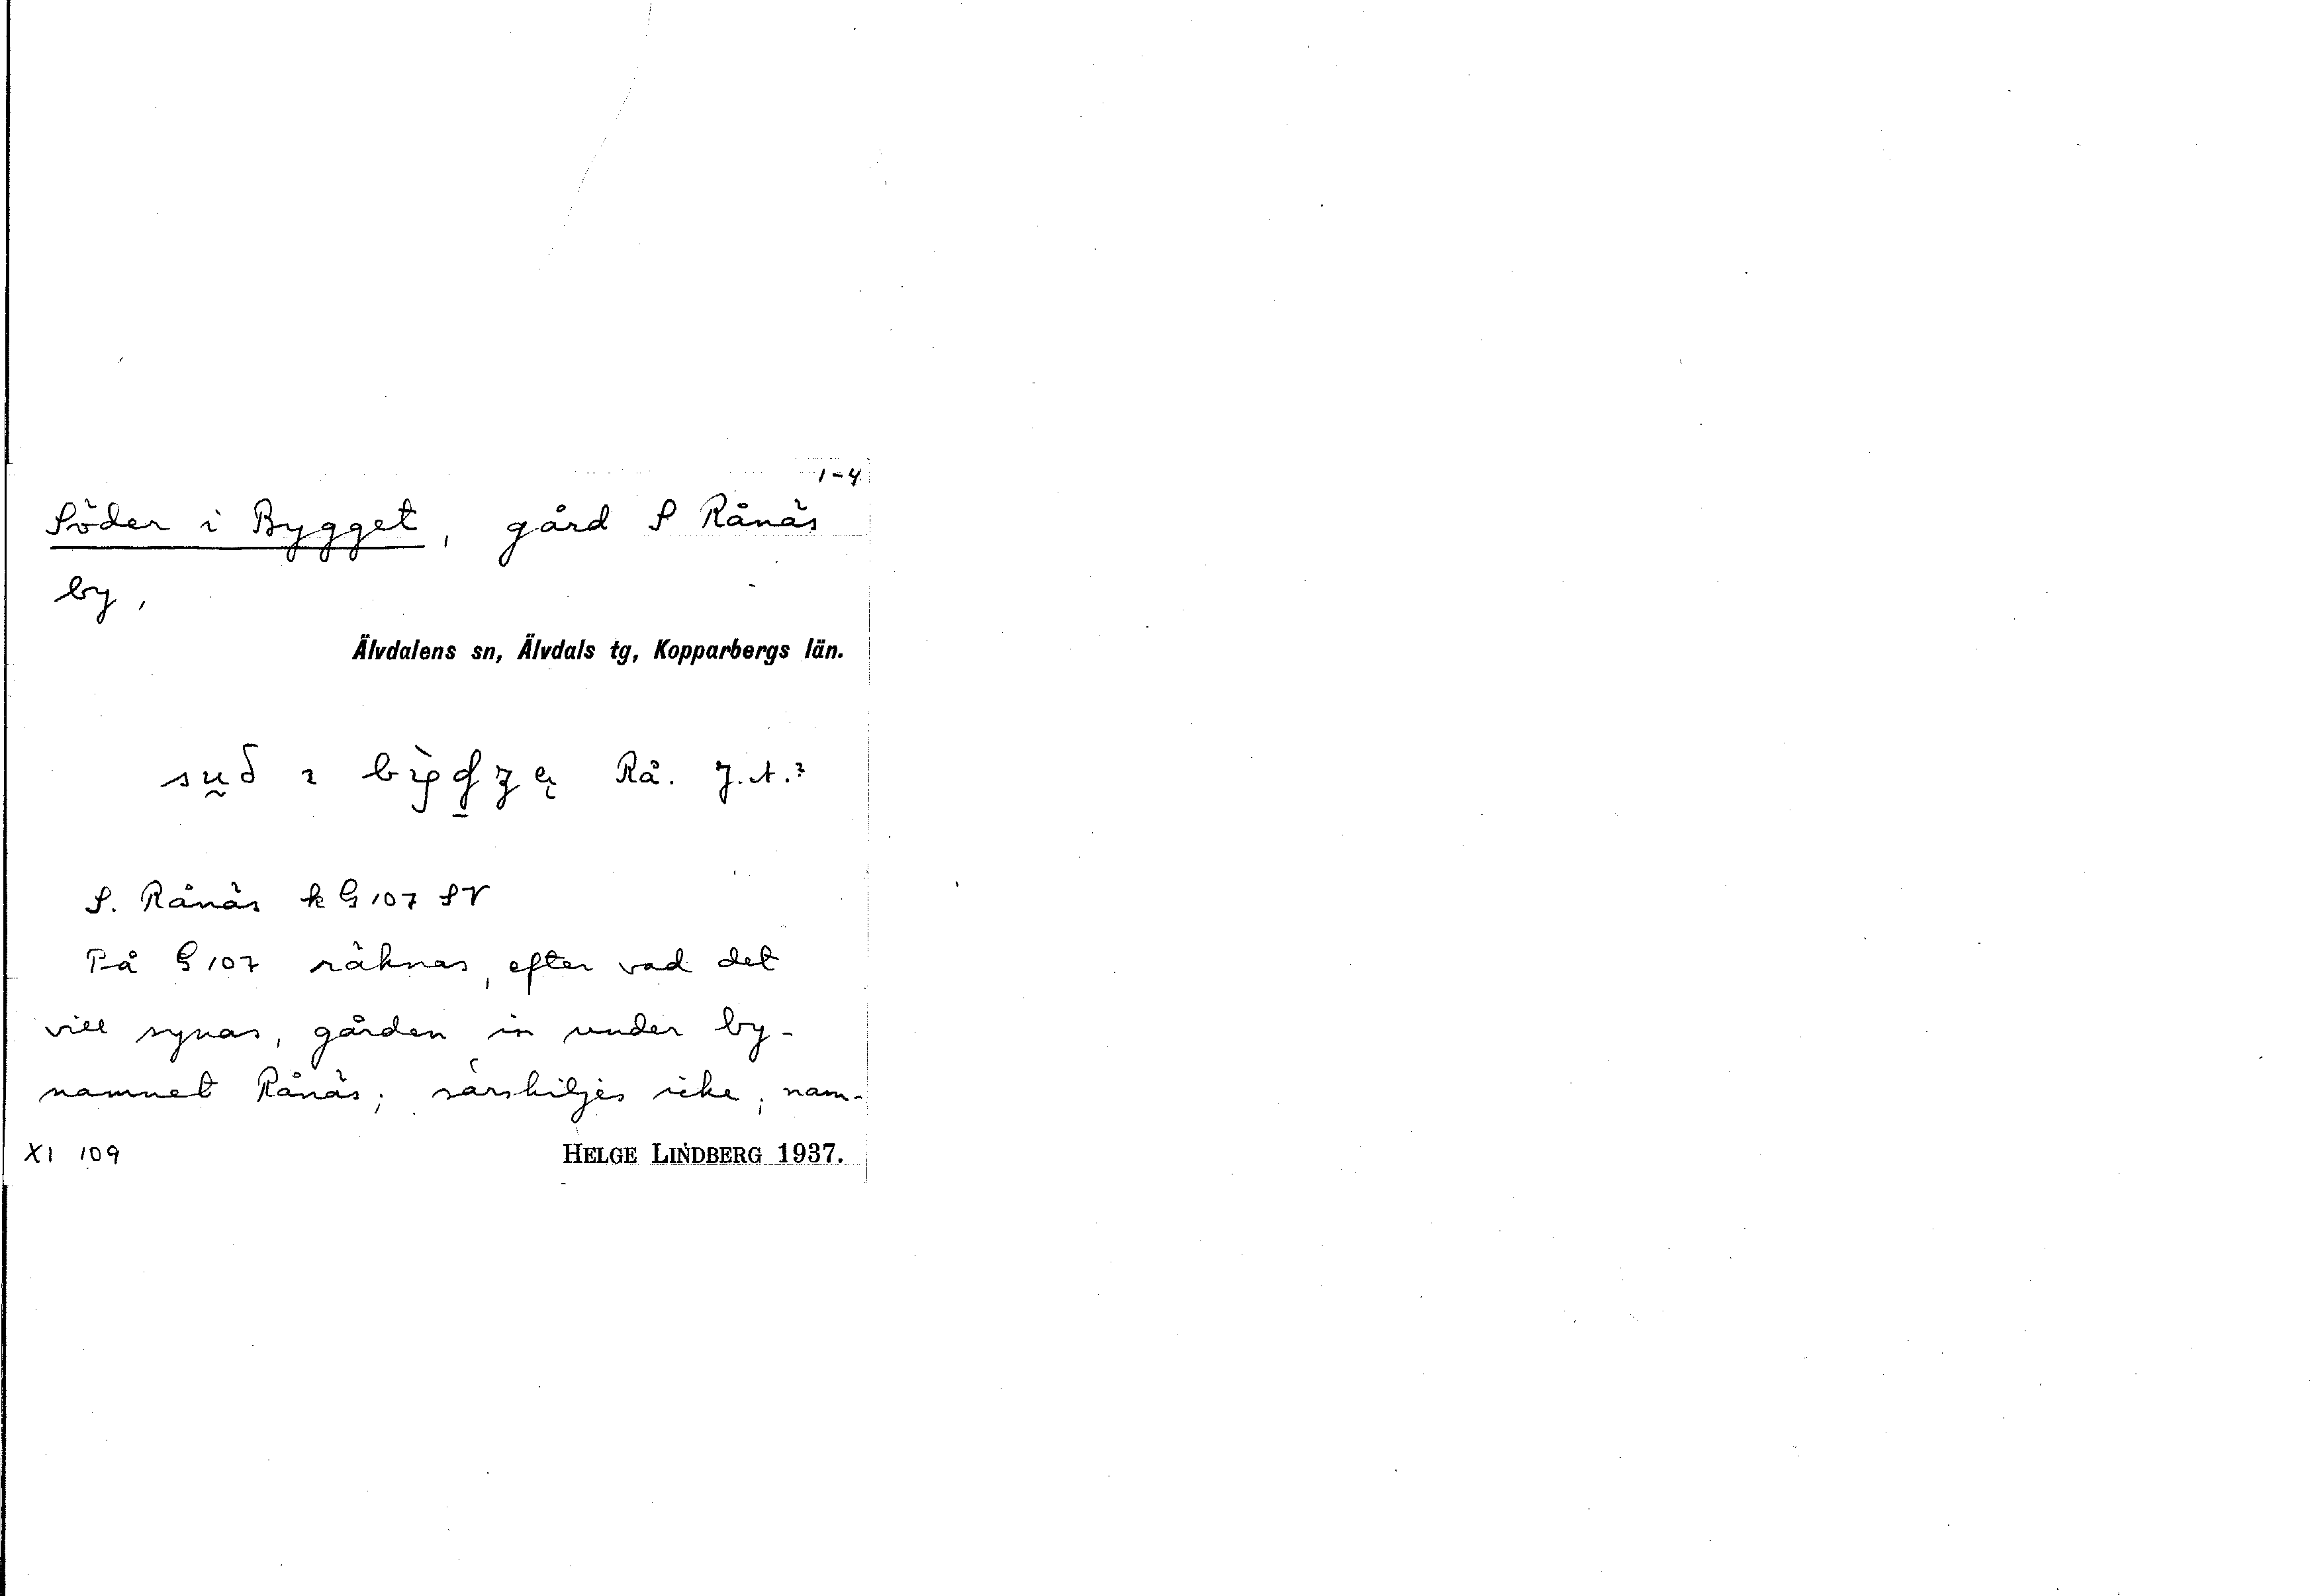 1-4
Söder i Bygget, gård S Rånäs
by,
Älvdalens sn, Älvdals tg, Kopparbergs län.
Rå. J.A.²
S. Rånäs k G 107 SV
På G 107 räknas, efter vad det
vill synas, gården in under by-
namnet Rånäs; särskiljes icke; nam-
XI 109
HELGE LINDBERG 1937.